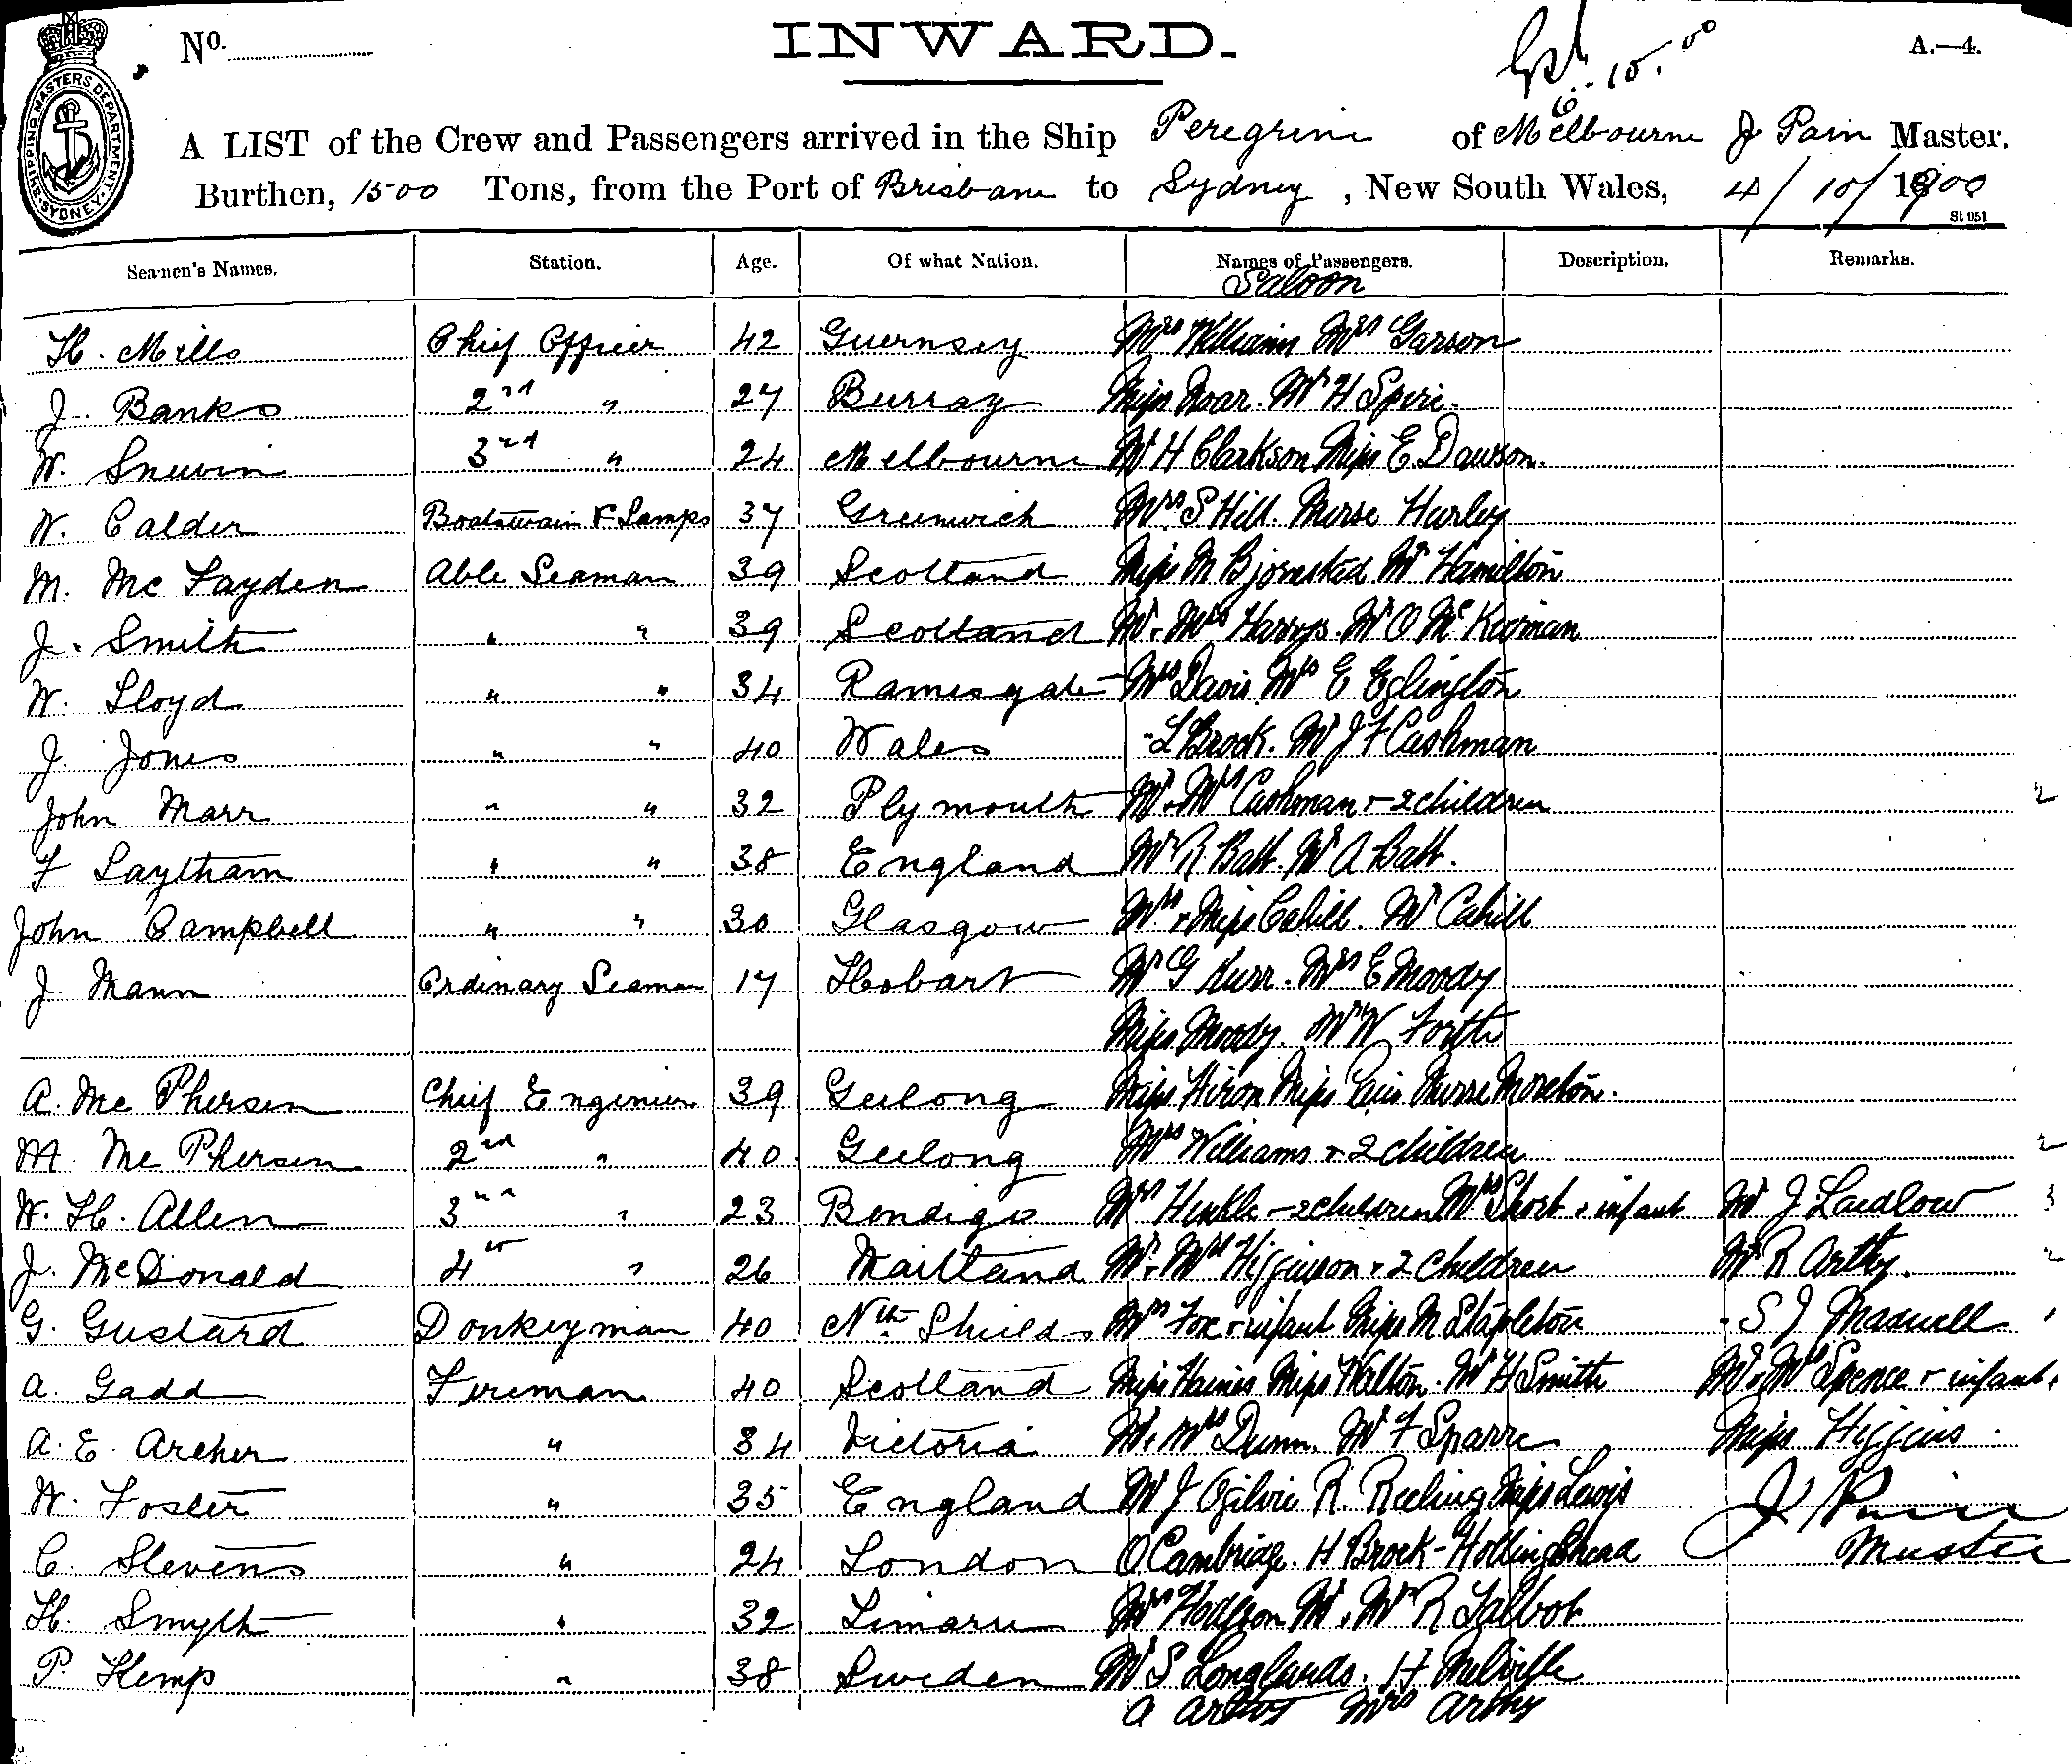 No.
INWARD.
A.—4.
SHIPPING MASTERS DEPARTMENT SYDNEY
A LIST of the Crew and Passengers arrived in the Ship Peregrine of Melbourne J Pain Master.
Burthen, 1500 Tons, from the Port of Brisbane to Sydney, New South Wales, 4/10/1900
St 951
Seamen's Names. Station. Age. Of what Nation. Names of Passengers. Description. Remarks.
Saloon
H. Mills Chief Officer 42 Guernsey Mrs William Mrs Garson
J. Banks 2nd " 27 Burray Miss Mr H Spire.
W. 3rd " 24 Melbourne Mr H Clarkson Miss E Dawson.
W. Calder Boatswain & Lamps 37 Greenwich Mrs S Hill. Nurse Hurley
M. McFayden Able Seaman 39 Scotland Miss M Mr Hamilton
J. Smith " " 39 Scotland Mr & Mrs Mr O McKiernan
W. Lloyd " " 34 Ramesgate Mrs Davis Mrs E Eglington
J. Jones " " 40 Wales " L Brock. Mr J F Cashman
John Marr " " 32 Plymouth Mr & Mrs Cashman & 2 children 2
F Laytham " " 38 England Mr R Batt. Mr A Batt.
John Campbell " " 30 Glasgow Mrs & Miss Cahill. Mr Cahill
J. Mann Ordinary Seaman 17 Hobart Mr G Mrs E Moody
Miss Moody. Mr W Forth
A. McPhersen Chief Enginier 39 Geelong Miss Hiron Miss Nurse Moreton.
M. McPhersen 2nd " 40 Geelong Mrs Williams & 2 children 2
W. H. Allen 3rd " 23 Bendigo Mrs Henkle & 2 children Mrs Short & infant Mr J. Laidlow 3
J. McDonald 4th " 26 Maitland Mr & Mrs Higginson & 2 children Mr R Arthy. 2
G. Gustard Donkeyman 40 Nth Shields Mrs Fox & infant Miss M Stapleton " S J Maxwell 1
A. Gadd Fireman 40 Scotland Miss Haines Miss Walton. Mr H Smith Mr & Mrs Spence & infant 1
A. E. Archer " 34 Victoria Mr & Mrs Dunn. Mr F Sparre Miss Higgins.
W. Foster " 35 England Mr J Ogilvie R. Reeling Miss Lewis J Pain
C. Stevens " 24 London O Cambridge. H Brock - Hollingshead Master
H. Smyth " 32 Timaru Mrs Hodgson Mr & Mr R Talbot
P. Kemp " 38 Sweden Mr S Longlands. H Melville
A Mrs Arthy